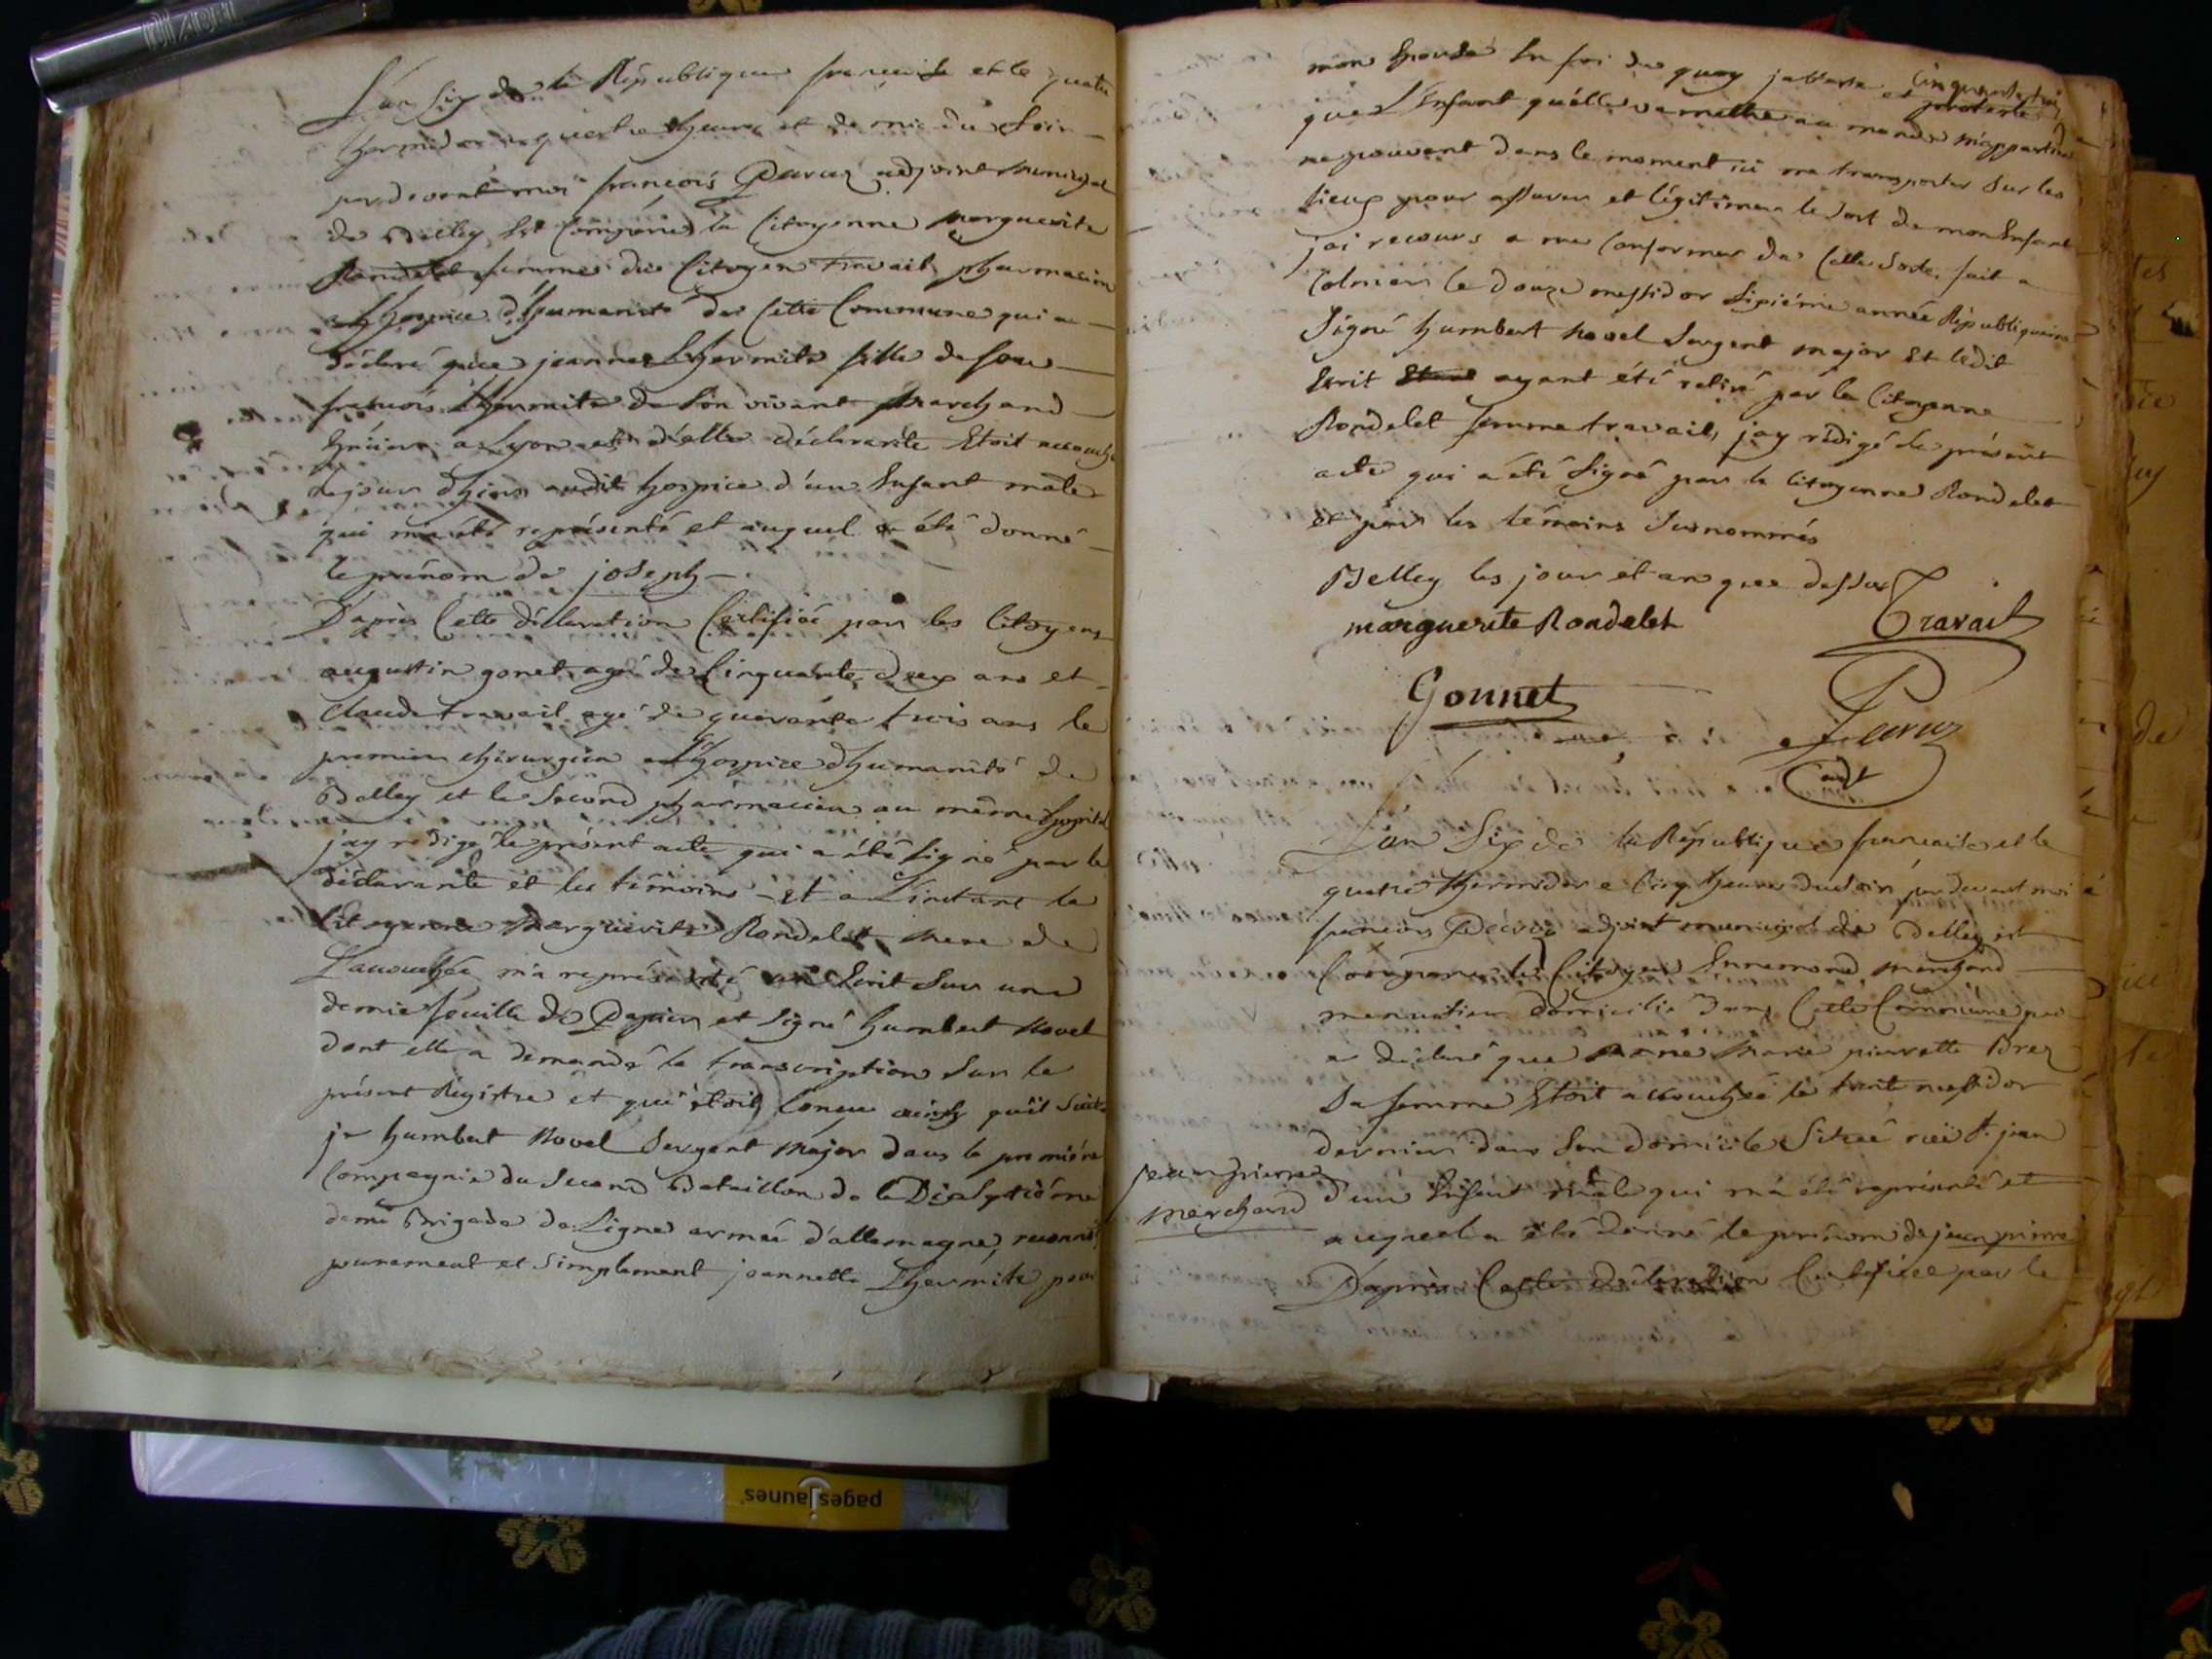 L'an six de la République francaise et le quatre
thermidor a quatre heures et demie du soir
par devant moi françois Peruz adjoint municipal
de Belley Est Comparue la Citoyenne marguerite
Rondelet femme du Citoyen travail pharmacien
a L'hospice d'humanité de Cette Commune qui a
déclaré que jeanne L'hermite fille de feu
francois L'hermite de son vivant Marchand
Epicier a Lyon et d'elle déclarante Etoit accouchée
le jour d'hier audit hospice d'un Enfant male
qui m'a été représenté et auquel a été donné
le prénom de joseph
D'après Cette déclaration Certifiée par les Citoyens
augustin gonet agé de Cinquante deux ans et
Claude travail agé de quarante trois ans le
premier chirurgien a L'hospice d'humanité de
Belley et le second pharmacien au même hopital
j'ay rédigé le présent acte qui a été signé par la
déclarante et les témoins et a L'instant la
Citoyenne Marguerite Rondelet mere de
L'accouchée m'a représenté un Ecrit sur une
demie feuille de Papier et signé humbert Novel
dont elle a demandé la transcription sur le
présent Régistre et qui étoit Conçu ainsy qu'il suit
je humbert Novel Sergent Major dans la premiére
Compagnie du second Bataillon de la
demi Brigade de Ligne armée d'allemagne, reconnois
purement et simplement jeannette L'hermite pour
mon Epouse En foi de quoy j'atteste et proteste
que L'Enfant qu'elle va mettre au monde m'appartient
ne pouvant dans le moment ici me transporter sur les
lieux pour assurer et légitimer le sort de mon Enfant
j'ai recours a me Conformer de Cette sorte, fait a
Colmar le douze messidor sixiéme année Républiquaine
Signé humbert Novel Sergent major Et ledit
Ecrit ayant été retiré par la Citoyenne
Rondelet femme travail, j'ay rédigé le présent
acte qui a été signé par la Citoyenne Rondelet
et par les témoins susnommés
Belley les jour et an que dessus
marguerite Rondelet Travail
Gonnet
Peruz
adt
L'an Six de la République francaise et le
quatre thermidor a Cinq heures du soir par devant moi
francois Peruz adjoint municipal de Belley est
Comparu le Citoyen Ennemond marchand
domicilié dans Cette Commune qui
a déclaré que Marie pierrette Brez
sa femme Etoit accouchée le trente messidor
dernier dans son domicile Situé rue St. jean
jean pierre
marchand
d'un Enfant male qui m'a été représenté et
auquel a été donné le prénom de jean pierre
D'après Cette Déclaration Certifiée par le
pagesJaunes